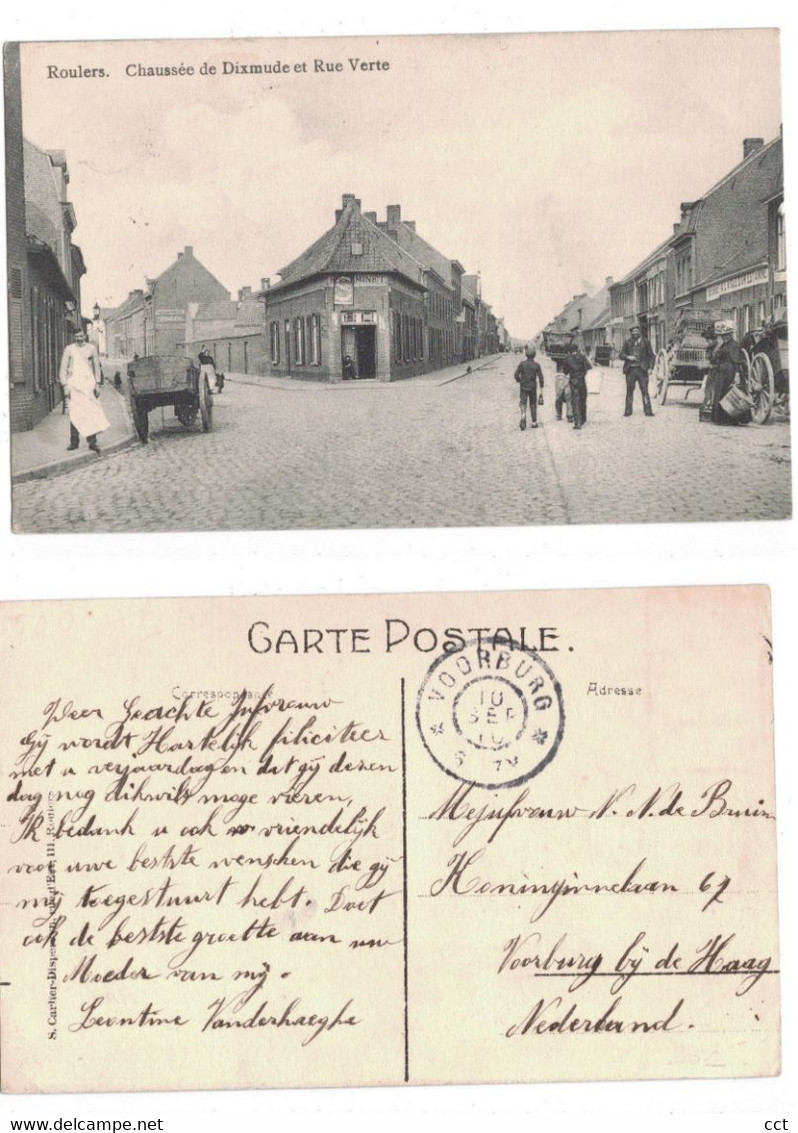 Roulers. Chaussée de Dixmude et Rue Verte
CARTE POSTALE.
Correspondance
Adresse
VOORBURG
10
SEP
10
Zeer Geachte Jufvrouw
Gij wordt Hartelijk filiciteer
met u verjaardag en dat gij dezen
dag nog dikwils moge vieren,
Ik bedank u ook vriendelijk
voor uwe bestste wenschen die gij
mij toegestuurt hebt. Doet
ook de bestste groette aan uw
Moeder van mij.
Leontine Vanderhaeghe
Mejufvrouw N. N. de Bruin
Honinginnelaan 67
Voorburg bij de Haag
Nederland.
S. Carlier-Dispersyn, rue d'Est, 111, Roulers
cct